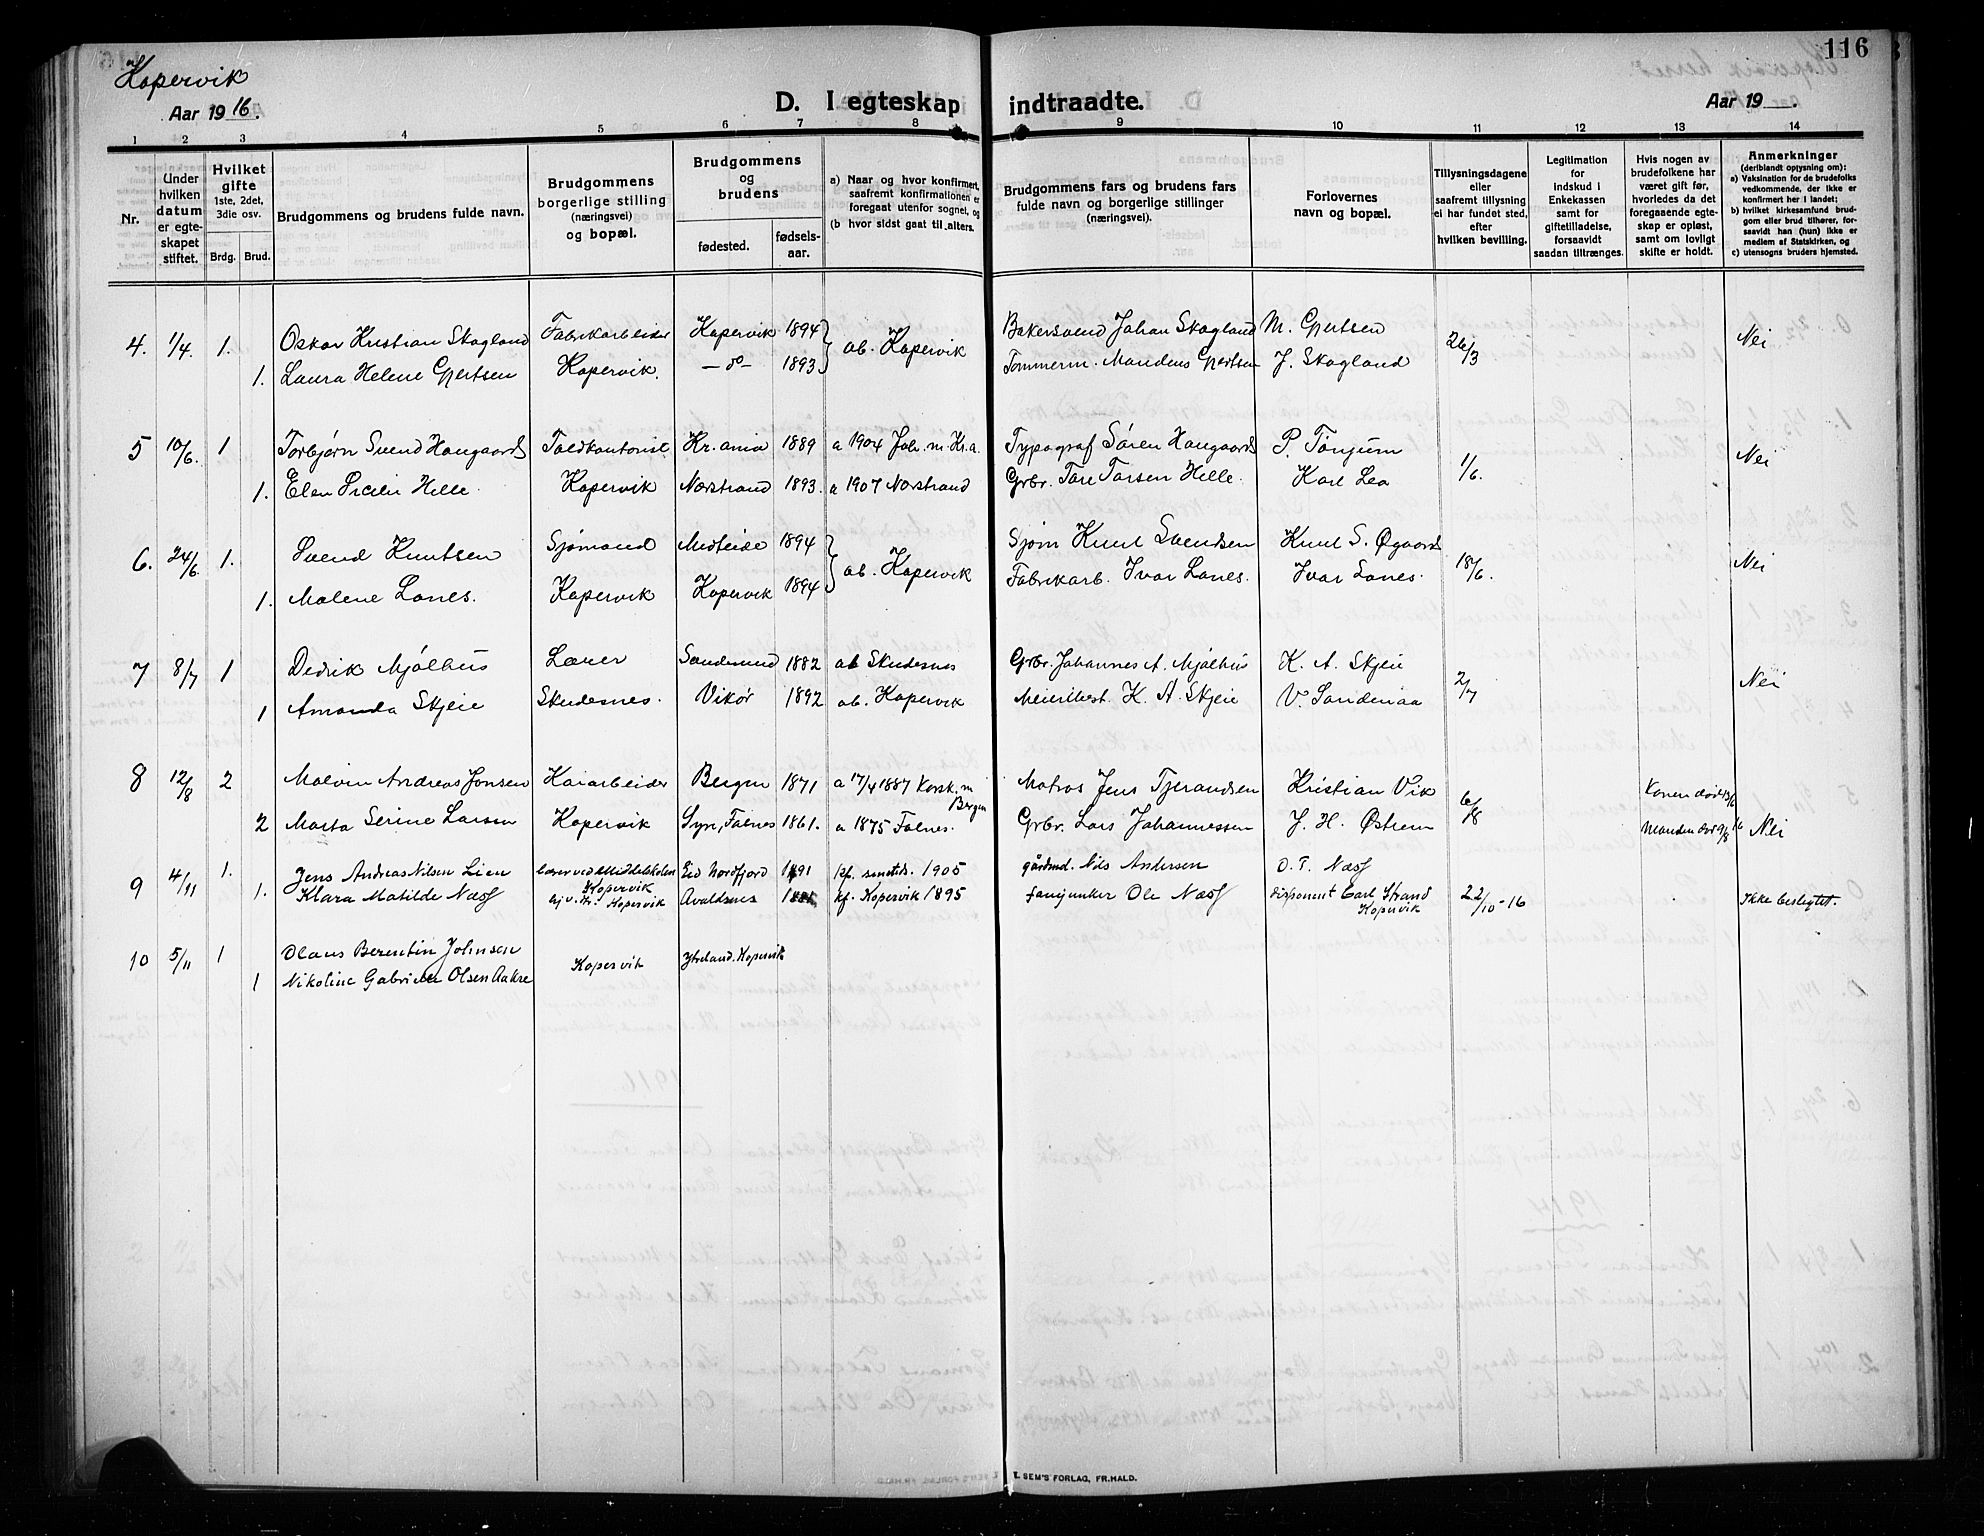 Kopervik
116
Aar 1916.
D. I egteskap indtraadte.
Aar 19 .
1 2 3 4 5 6 7 8 9 10 11 12 13 14
Nr.
Under hvilken datum er egteskapet stiftet.
Hvilket gifte 1ste, 2det, 3die osv.
Brdg. Brud.
Brudgommens og brudens fulde navn.
Brudgommens borgerlige stilling (næringsvei) og bopæl.
Brudgommens og brudens
fødested.
fødselsaar.
a) Naar og hvor konfirmert, saafremt konfirmationen er foregaat utenfor sognet, og
(b hvor sidst gaat til alters.
Brudgommens fars og brudens fars fulde navn og borgerlige stillinger (næringsvei).
Forlovernes navn og bopæl.
Tillysningsdagene eller saafremt tillysning ei har fundet sted, efter hvilken bevilling.
Legitimation for indskud i Enkekassen samt for giftetilladelse, forsaavidt saadan tiltrænges.
Hvis nogen av brudefolkene har været gift før, hvorledes da det foregaaende egteskap er opløst, samt om lovligt skifte er holdt.
Anmerkninger (deriblandt oplysning om):
a) Vaksination for de brudefolks vedkommende, der ikke er konfirmert her i landet;
b) hvilket kirkesamfund brudgom eller brud tilhører, forsaavidt han (hun) ikke er medlem af Statskirken, og
c) utensogns bruders hjemsted.
4. 1/4. 1. Oskar Kristian Skogland Fabrikarbeider Kopervik 1894 ab. Kopervik Bakersvend Johan Skogland M. Gjertsen 26/3 Nei
1. Laura Helene Gjertsen Kopervik. — do — 1893 Tømmerm. Mandius Gjertsen J. Skogland
5 10/6. 1 Torbjørn Svend Haugaard Toldkontorist Kr.ania 1889 a 1904 Joh. m. Kr.a. Typograf Søren Haugaard P. Tønjum 1/6. Nei
1. Elen Helle. Kopervik Nærstrand 1893. a 1907 Nærstrand Grbr. Tore Torsen Helle. Karl Lea
6. 24/6 1. Svend Knutsen Sjømand 1894 ab. Kopervik Sjøm Knut Svendsen Knut S. Øgaard 18/6. Nei
1. Malene Lones. Kopervik Kopervik 1894 Fabrikarb. Ivar Lones. Ivar Lones.
7 8/7 1 Didrik Mjølhus Lærer 1882 ab Skudesnes Grbr. Johannes A. Mjølhus K. A. Skjeie 2/7 Nei
1 Amanda Skjeie Skudesnes. Vikør 1892 ab. Kopervik Meieribest. K. A. Skjeie V. Sandenaa
8 12/8 2 Malvin Andreas Jonsen Kaiarbeider Bergen 1871 a 17/4 1887 Korsk. m Bergen Matros Jens Tjerandsen Kristian Vik 6/8 Konen død
2 Marta Serine Larsen Kopervik Syre, Falnes 1861. a 1875 Falnes. Grbr. Lars Johannessen J. H. Østrem Manden død 9/8 Nei
9 4/11 1. Jens Andreas Nilsen Lien lærer ved Middelskolen Kopervik Eid Nordfjord 1891 kf. smstds. 1905 gårdmd. Nils Andersen O. T. Næss 22/10-16 Ikke beslegtet.
1. Klara Matilde Næss Kopervik Avaldsnes kf. Kopervik 1895 fanejunker Ole Næss disponent Carl Strand Kopervik
10 5/11 1 Olaus Berentin Johnsen Kopervik Ytreland. Kopervik
1 Nikoline Gabrielle Olsen Aakre
E. SEM'S FORLAG, FR.HALD.